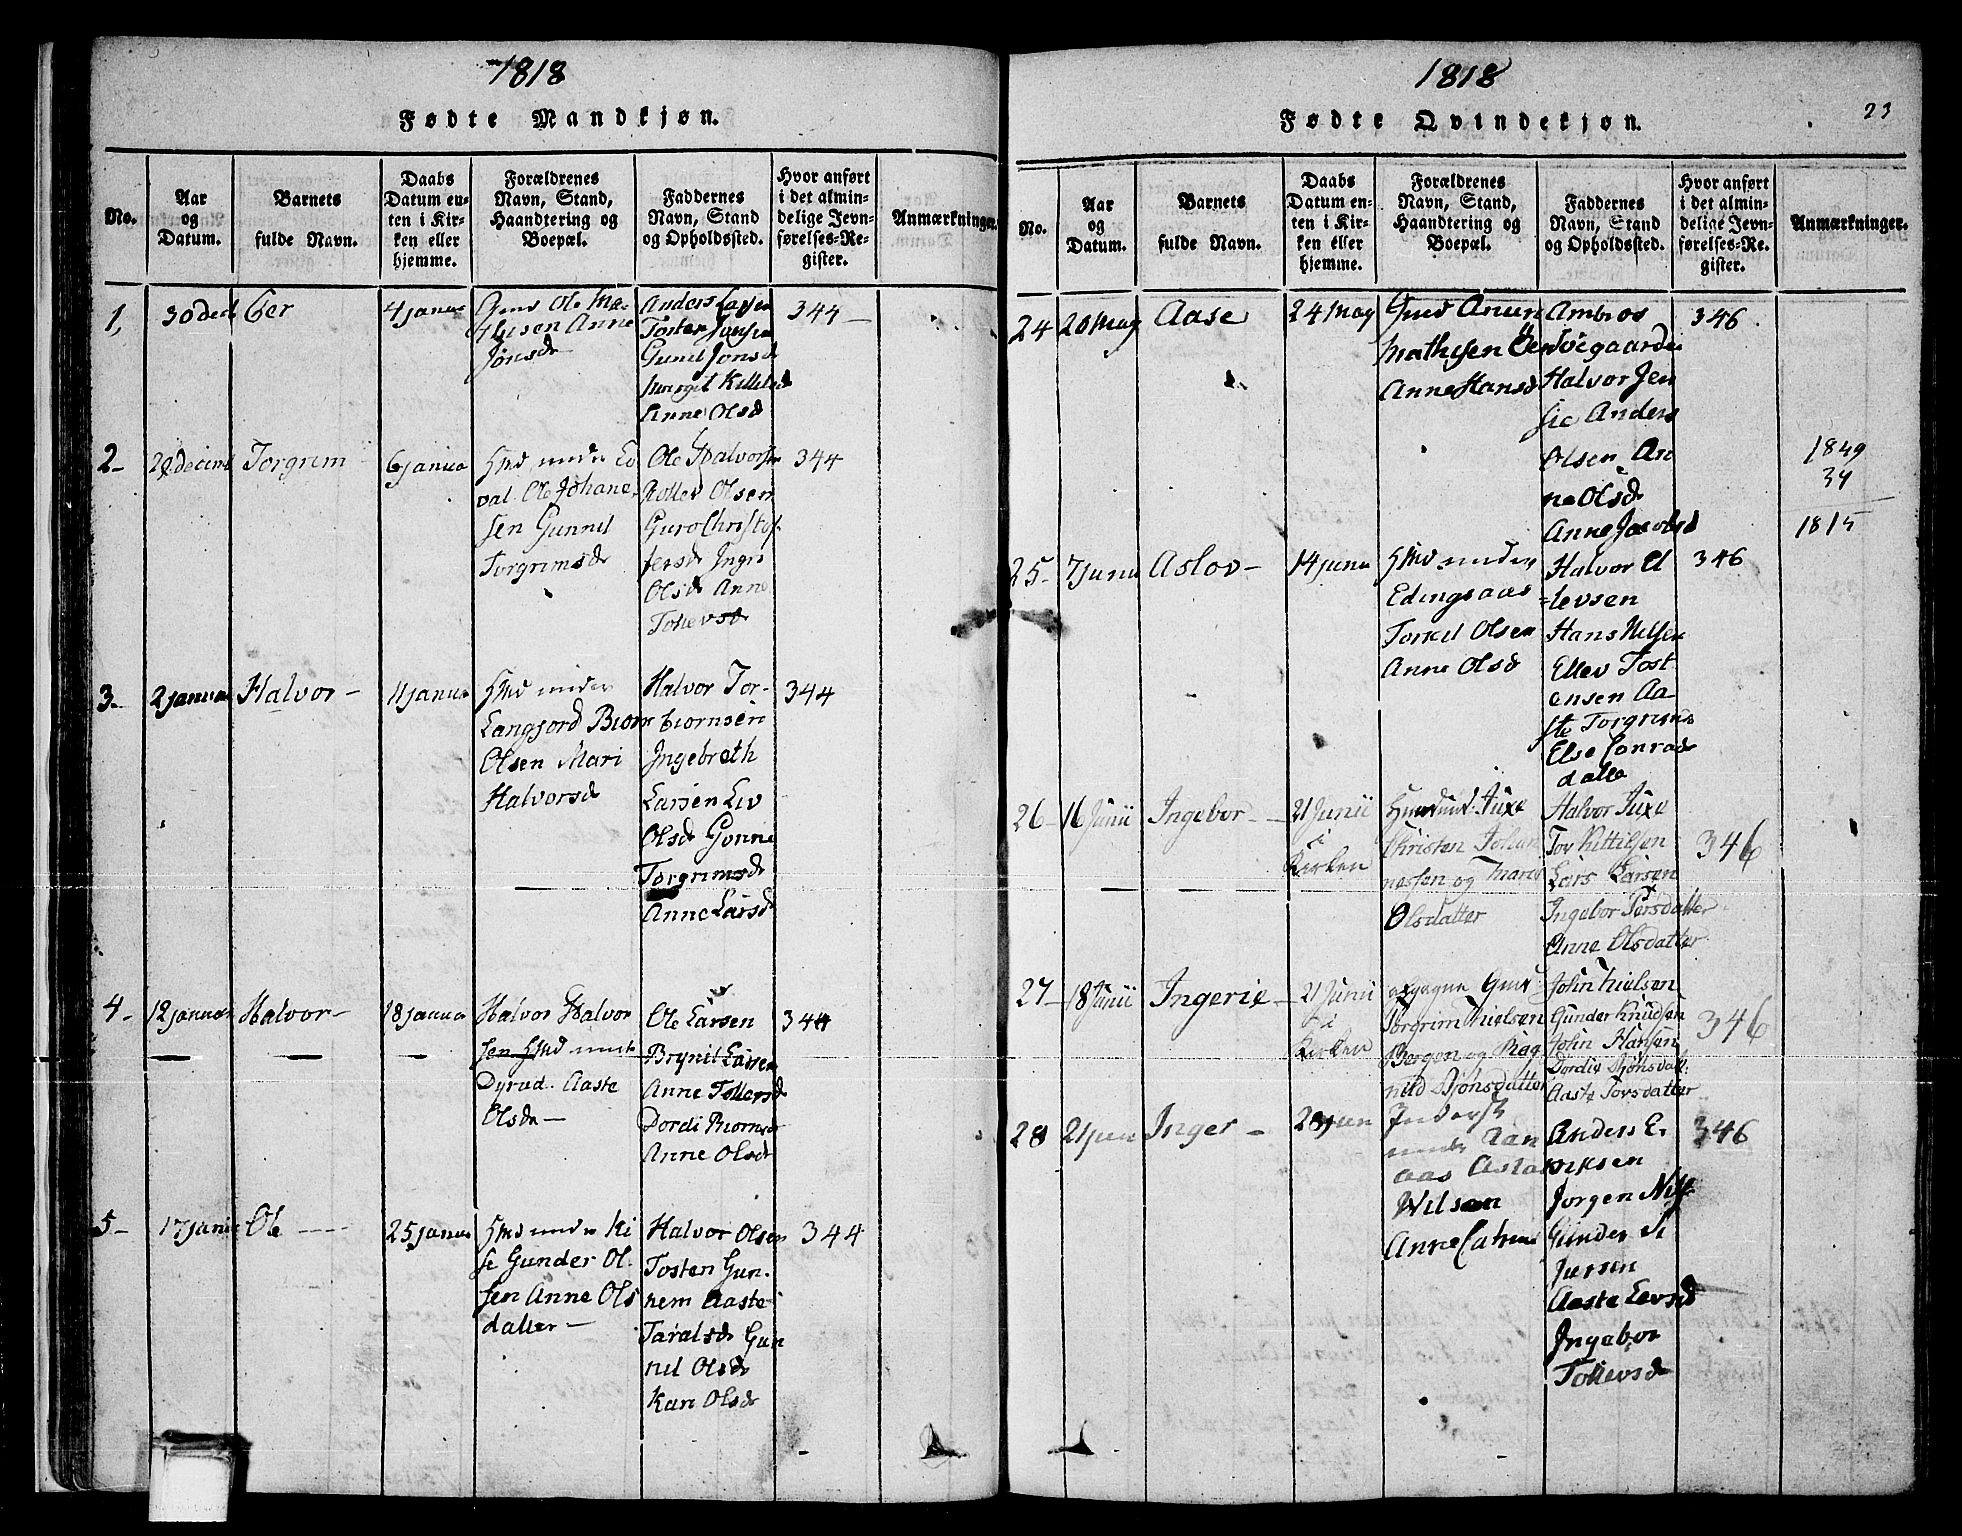 1818
Fødte Mandkjøn.
No.
Aar
og
Datum.
Barnets
fulde Navn.
Daabs
Datum en-
ten i Kir-
ken eller
hjemme.
Forældrenes
Navn, Stand,
Haandtering og
Boepæl.
Faddernes
Navn, Stand
og Opholdssted.
Hvor anført
i det almin-
delige Jevn-
førelses-Re-
gister.
Anmærkninger.
1,
30 dec
Eer
4 janua
Gmd Ole Ma-
thisen Anne
Jonsd
Anders Larsen
Toster Jensen
Gunil Jonsd
Margit Killilsd
Anne Olsd
344
2-
Torgrim
6 janua
Hmd under
val Ole Johane-
sen Gunnil
Torgrimsd
Ole Halvorsen
Rollev Olsen
Guro Christof-
fersd Ingri
Olsd Anne
Tollevsd
344
3-
2 janua
Halvor-
11 janua
Hmd under
Langfjord Biorn
Olsen Mari
Halvorsd
Halvor Tor-
biornsen
Ingebreth
Larsen Liv
Olsd Gonne
Torgrimsd
Anne Larsd
344
4-
12 janua
Halvor-
18 janua
Halvor Halvor
sen Hmd und
Dyrud. Aaste
Olsd-
Ole Larsen
Brynil Larsen
Anne Tollevsd
Dordi Biornsd
Anne Olsd
344
5-
17 janu
Ole
25 janua
Hmd under Ki
se Gunder Ol-
sen Anne Ols
datter-
Halvor Olsen
Tosten Gun-
nem Aaste
Taralsd Gun
nil Olsd
Kari Olsd
344
1818
Fødte Qvindekjøn.
23
No.
Aar
og
Datum.
Barnets
fulde Navn.
Daabs
Datum en-
ten i Kir-
ken eller
hjemme.
Forældrenes
Navn, Stand,
Haandtering og
Boepæl.
Faddernes
Navn, Stand
og Opholdssted.
Hvor anført
i det almin-
delige Jevn-
førelses-Re-
gister.
Anmærkninger.
24
20 May
Aase
24 May
Gmd Anun
Mathisen
Anne Hansd
Ambros
Halvor Jen
sic Anders
Olsen An
ne Olsd
Anne Jacobsd
346
1849
34
1815
25-
7 junii
Aslov-
14 junii
Hmd under
Edingsaas
Torkil Olsen
Anne Olsd
Halvor El
levsen
Hans Nilsen
Ellev Tost
ensen Aa-
ste Torgrims
Else Conrad
datter
346
26-
16 Junii
Ingebor-
21 Junii
i
Kirken
Huusmd: Juxe
Christen Johan
nessen og Maren
Olsdatter
Halvor Juxe
Tov Kittilsen
Lars Larsen
Ingebor Persdatter
Anne Olsdatter
346
27-
18 Junii
Ingerie-
21 Junii
i
Kirken
Torgrim Nielsen
Bergan og Rag
nild Bjönsdatter
John Nielsen
Gunder Knudsen
John Hansen
Dordie Bjönsdatt:
Aaste Torsdatter
346
28
21 jun
Inger-
28 jun
Inderst
under Aan
aas Aslak
Wilsen
Anne Catrine
Anders E-
riksen
Jorgen Nils
Gunder Si
jursen
Aaste Levsd
Ingebor
Tollevsd
346